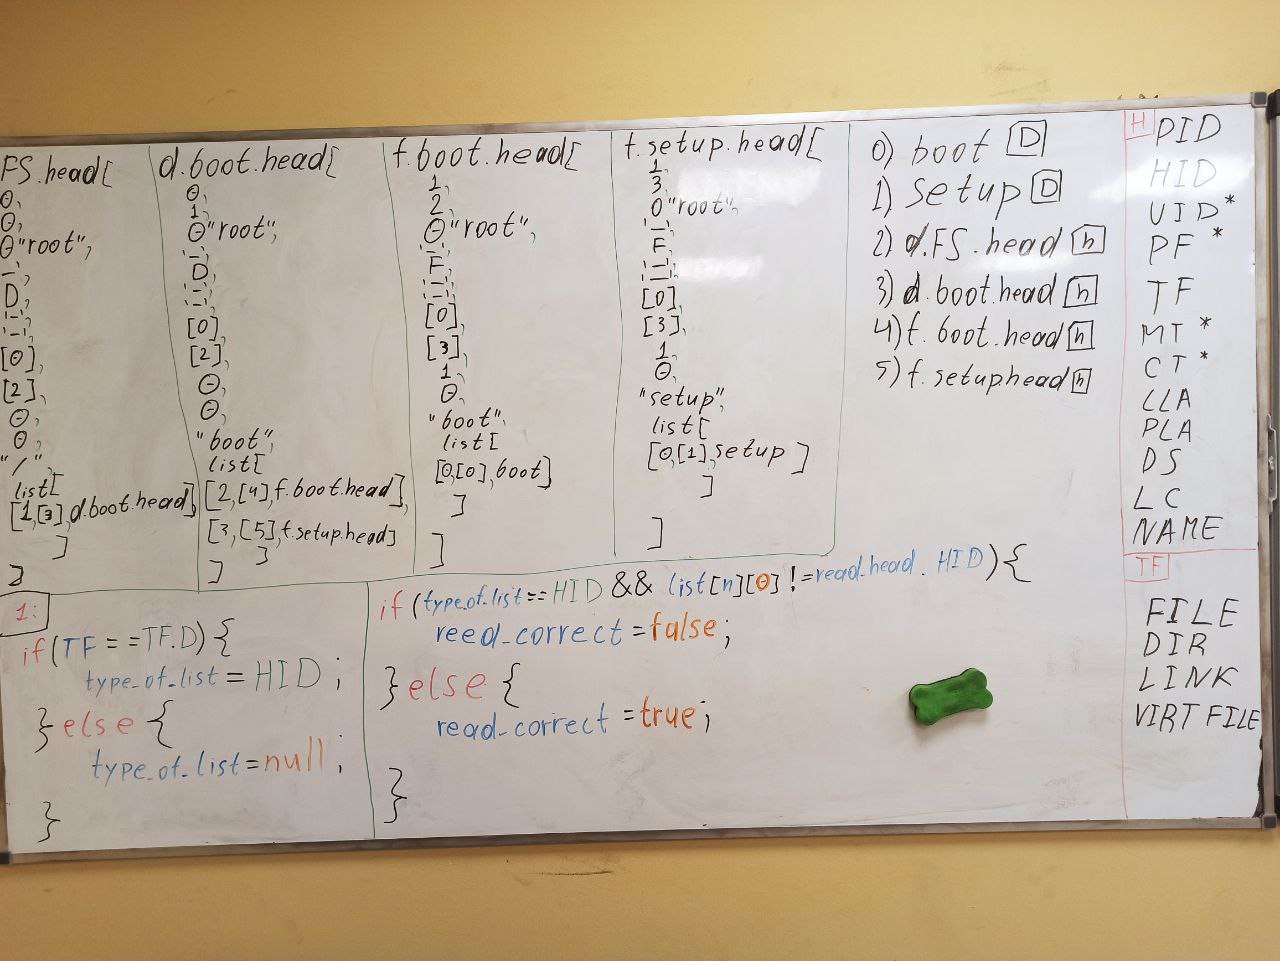 FS.head[
0,
0,
0"root",
-,
D,
'-',
'-',
[0],
[2],
0,
0,
"/",
list[
[1,[3],d.boot.head]
]
]
d.boot.head[
0,
1,
0"root",
'-',
D,
'-',
'-',
[0],
[2],
0,
0,
"boot",
list[
[2,[4],f.boot.head],
[3,[5],f.setup.head]
]
]
f.boot.head[
1,
2,
0"root",
'-',
F,
'-',
'-',
[0],
[3],
1,
0,
"boot",
list[
[0,[0],boot]
]
]
f.setup.head[
1,
3,
0"root",
'-',
F,
'-',
'-',
[0],
[3],
1,
0,
"setup",
list[
[0,[1],setup]
]
]
0) boot D
1) setup D
2) d.FS.head h
3) d.boot.head h
4) f.boot.head h
5) f.setup.head h
H
PID
HID
UID*
PF*
TF
MT*
CT*
LLA
PLA
DS
LC
NAME
TF
FILE
DIR
LINK
VIRT FILE
1:
if(TF==TF.D){
type_of_list=HID;
}else{
type_of_list=null;
}
if(type_of_list==HID && list[n][0]!=read_head.HID){
reed_correct=false;
}else{
read_correct=true;
}